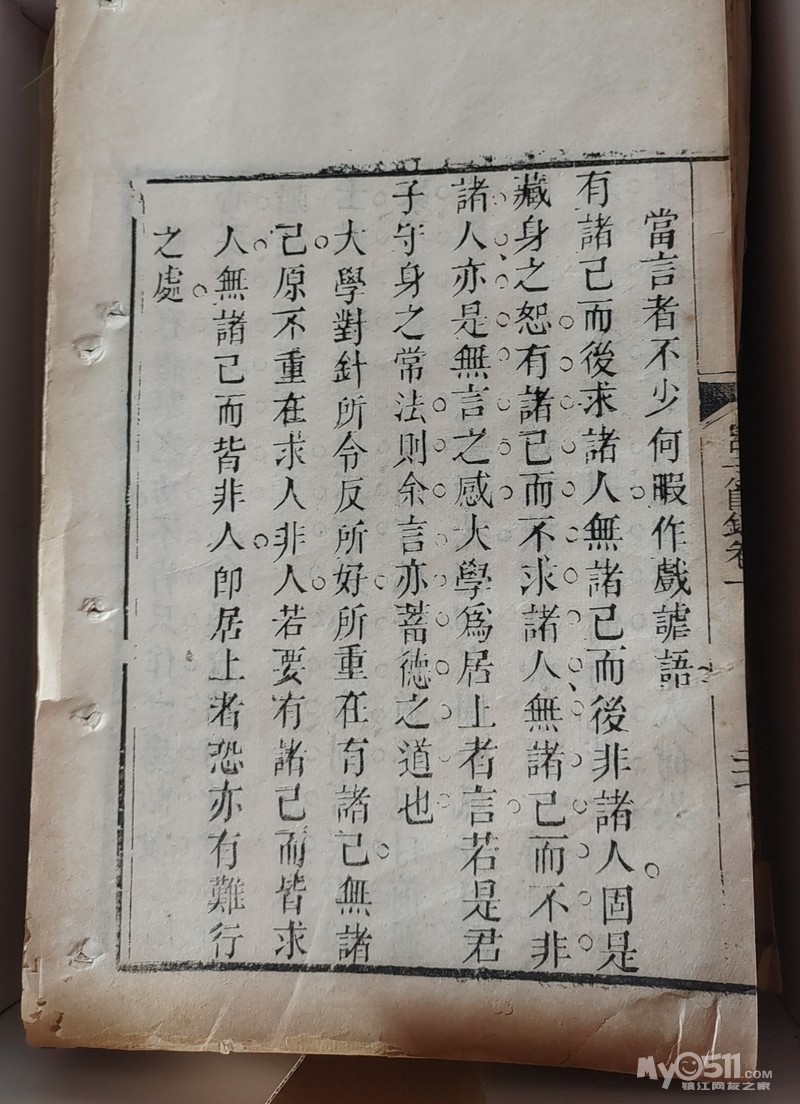 當言者不少何暇作戲謔語
有諸己而後求諸人無諸己而後非諸人固是
藏身之恕有諸己而不求諸人無諸己而不非
諸人亦是無言之感大學爲居上者言若是君
子守身之常法則余言亦蓄德之道也
大學對針所令反所好所重在有諸己無諸
己原不重在求人非人若要有諸己而皆求
人無諸己而皆非人卽居上者恐亦有難行
之處
卷一
My0511.COM
镇江网友之家